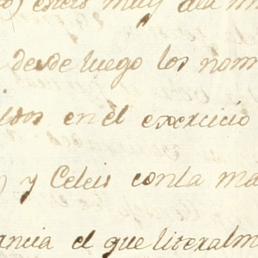 muy
desde luego los nom
en el exercicio
y Celeis conla ma
ancia el que literalm